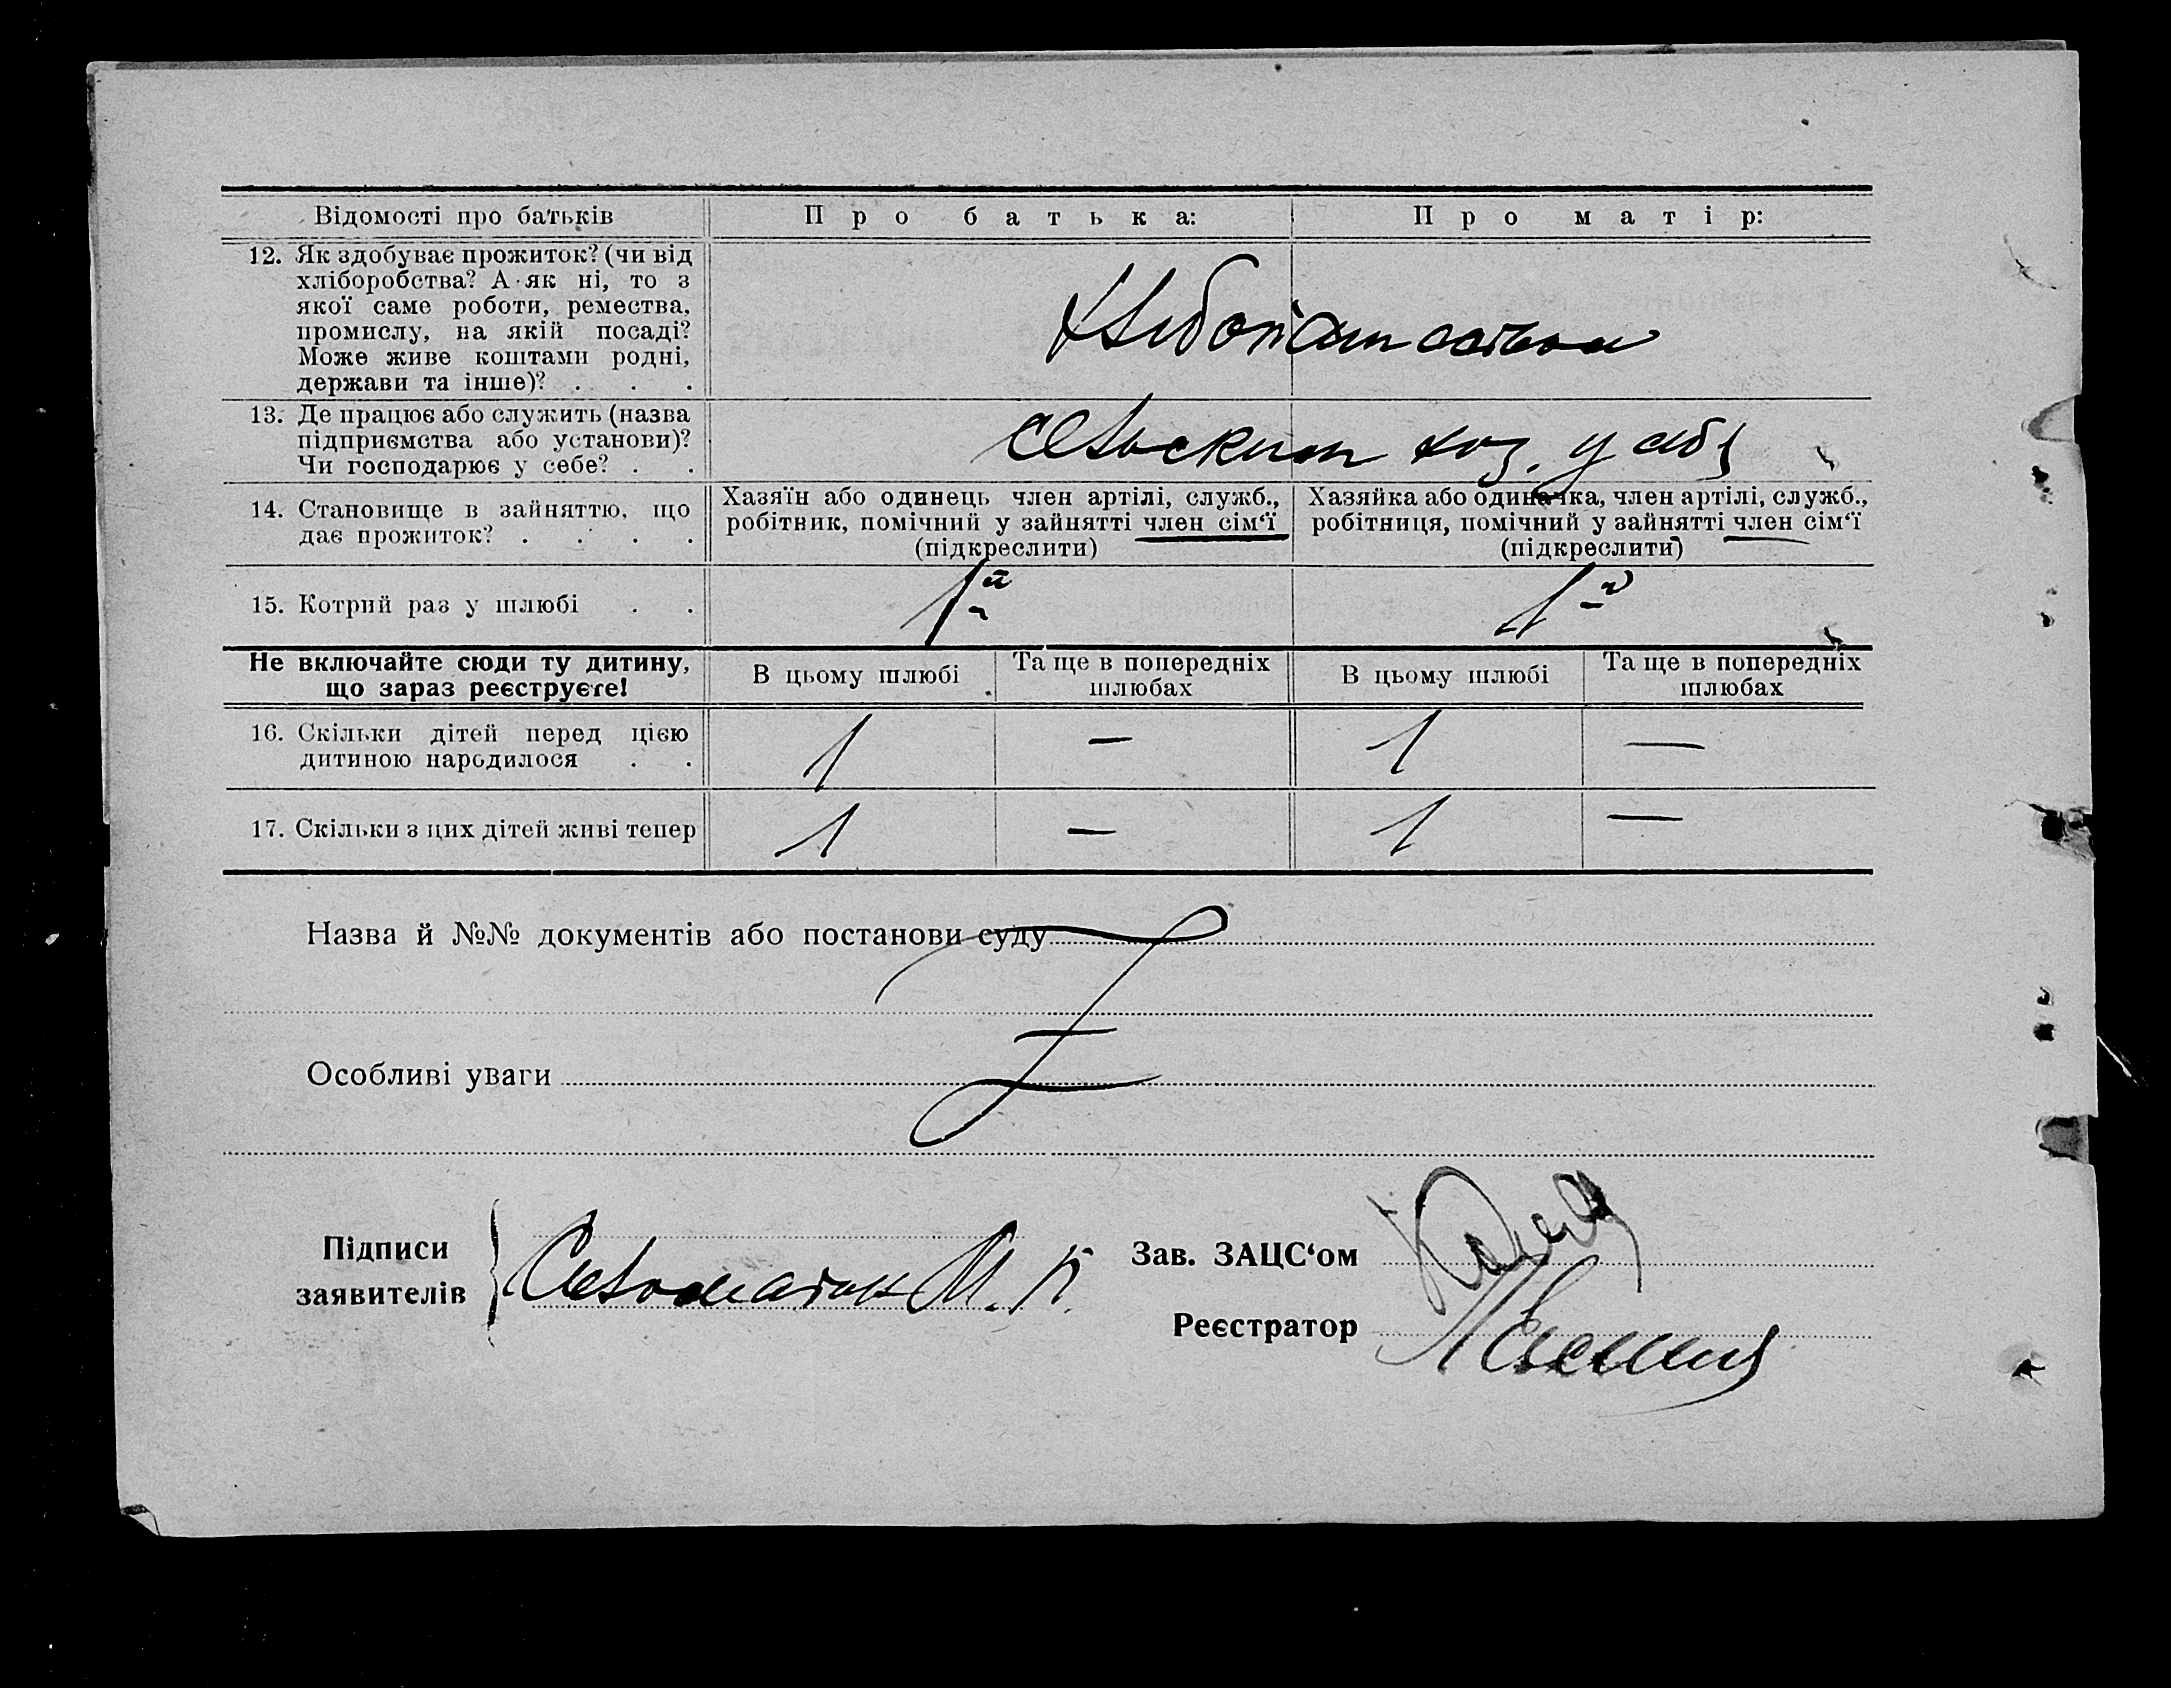 Відомості про батьків
Про батька:
Про матір:
12. Як здобуває прожиток? (чи від
хліборобства? А як ні, то з
якої саме роботи, ремества,
промислу, на якій посаді?
Може живе коштами родні,
держави та інше)? . . .
13. Де працює або служить (назва
підприємства або установи)?
Чи господарює у себе? . .
хоз. у себя
14. Становище в зайняттю, що
дає прожиток? . . . .
Хазяїн або одинець член артілі, служб.,
робітник, помічний у зайнятті член сім'ї
(підкреслити)
Хазяйка або одиначка, член артілі, служб.,
робітниця, помічний у зайнятті член сім'ї
(підкреслити)
15. Котрий раз у шлюбі . .
1й
1й
Не включайте сюди ту дитину,
що зараз реєструєте!
В цьому шлюбі
Та ще в попередніх
шлюбах
В цьому шлюбі
Та ще в попередніх
шлюбах
16. Скільки дітей перед цією
дитиною народилося . .
1 — 1 —
17. Скільки з цих дітей живі тепер
1 — 1 —
Назва й №№ документів або постанови суду
Особливі уваги
Підписи
заявителів
М. К.
Зав. ЗАЦС‘ом
Реєстратор